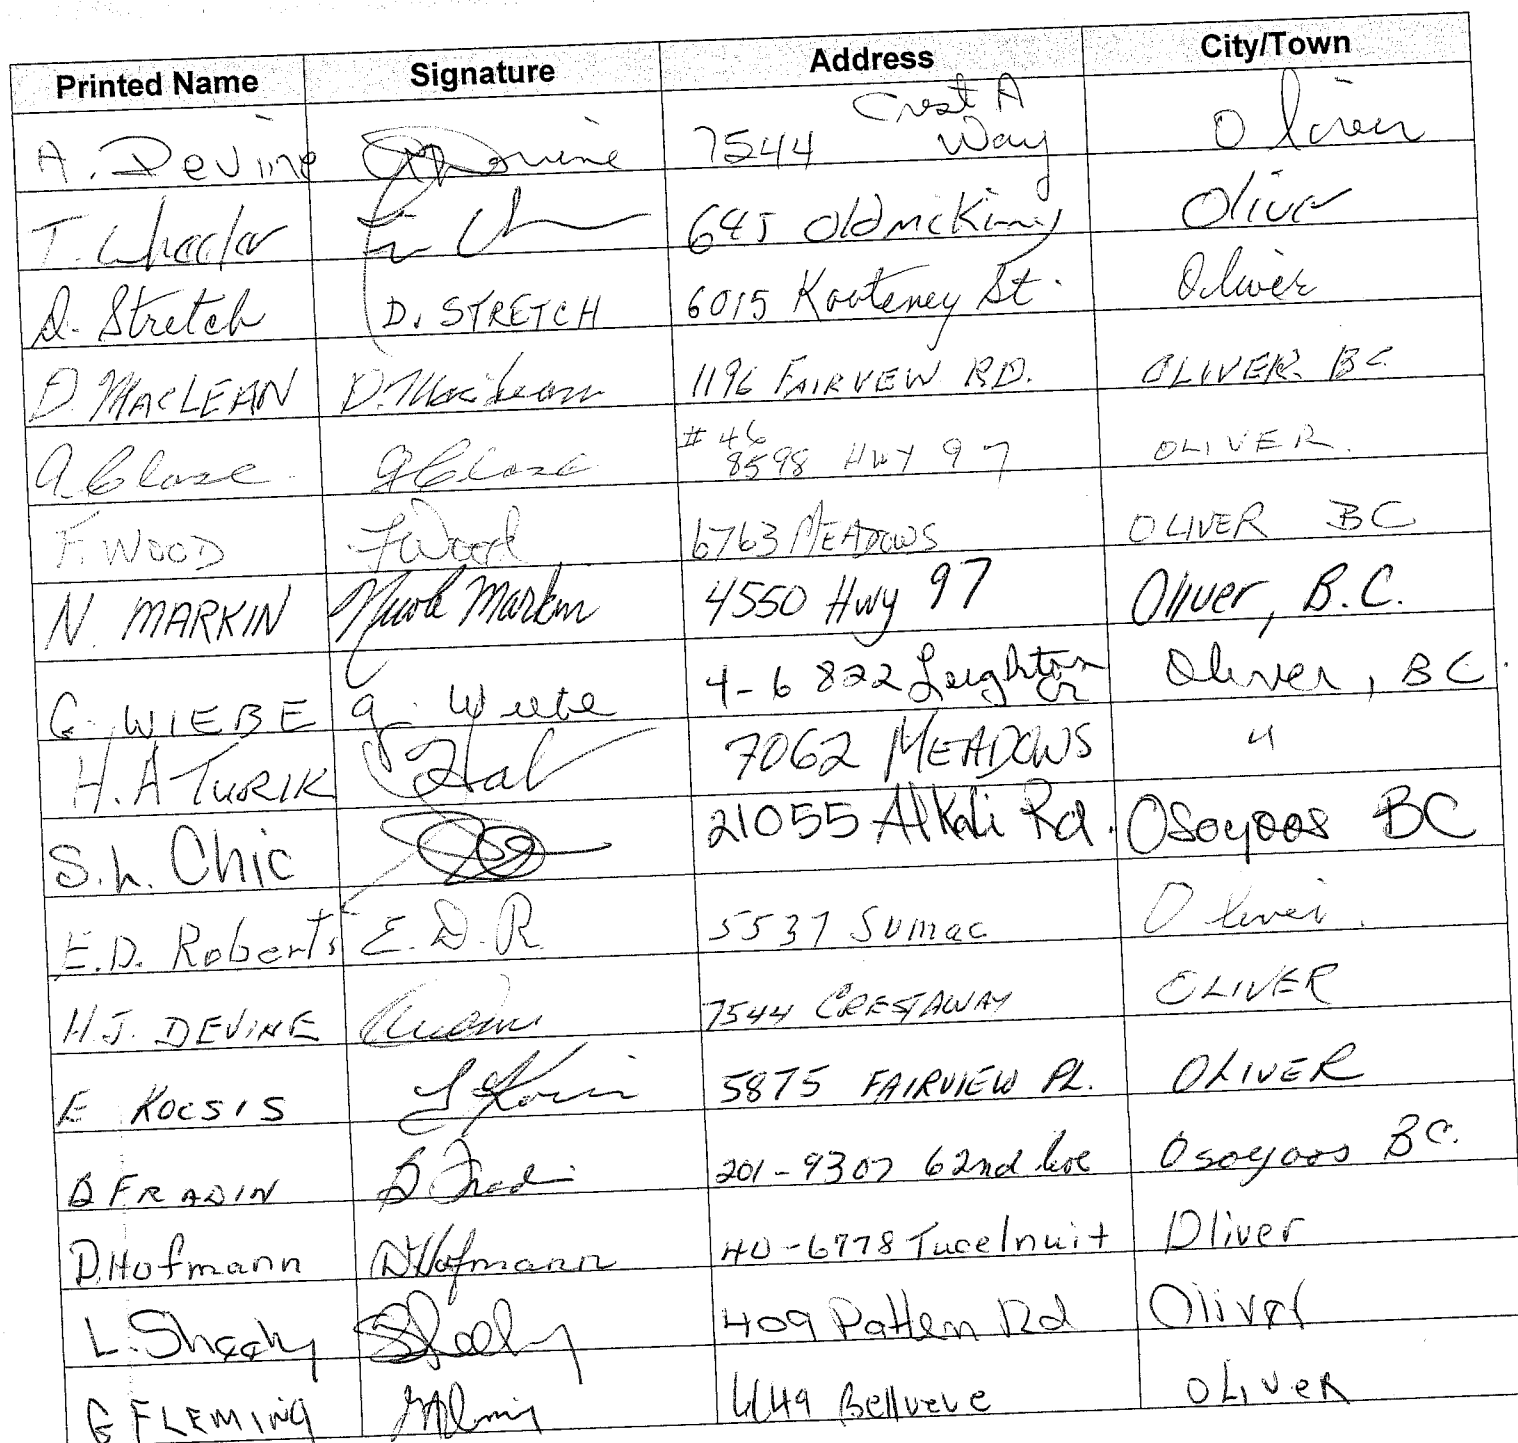 Printed Name Signature Address City/Town
A. Devine Devine 7544 Crest A Way Oliver
T. Wheeler 645 Old McKinney Oliver
D. Stretch D. STRETCH 6015 Kooteney St. Oliver
D. MACLEAN D. MacLean 1196 FAIRVEW RD. OLIVER. BC
A. Close A Close #46 8598 HWY 97 OLIVER.
F. WOOD F Wood 6763 MEADOWS OLIVER BC
N. MARKIN Nicole Markin 4550 Hwy 97 Oliver, B.C.
G. WIEBE G. Wiebe 4-6822 Leighton Cr Oliver, BC.
H. A TURIK Hal 7062 MEADOWS "
S.L. Chic 21055 Alkali Rd. Osoyoos BC
E.D. Roberts E. D. R. 5537 Sumac Oliver.
H.J. DEVINE 7544 CRESTAWAY OLIVER
E KOCSIS 5875 FAIRVIEW PL. OLIVER
B FRADIN B Fradin 201-9307 62nd Ave Osoyoos BC.
D. Hofmann D Hofmann 40-6778 Tucelnuit Oliver
L. Sheehy Sheehy 409 Patten Rd Oliver
G FLEMING 6149 Bellveve OLIVER